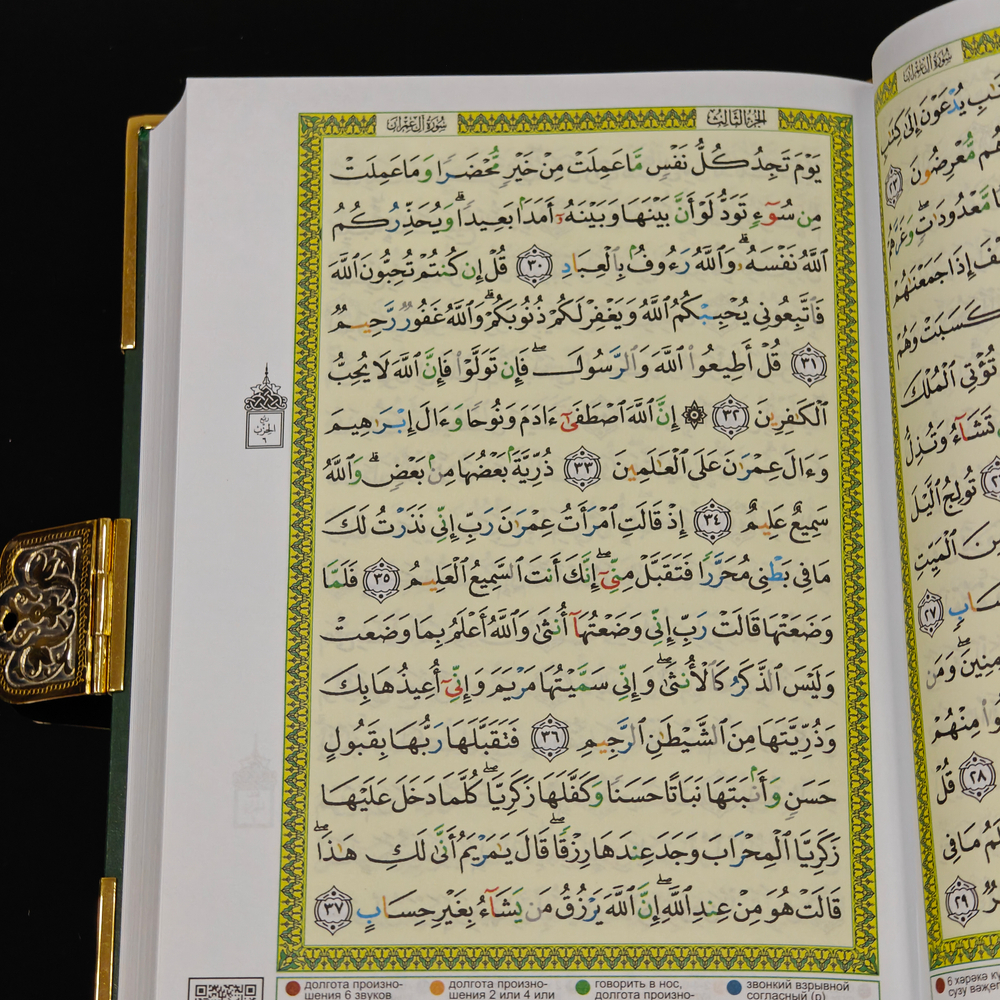 سُورَةُ آلِ عِمْرَان
الجُزءُ الثَّالِثُ
يَوْمَ تَجِدُ كُلُّ نَفْسٍ مَّا عَمِلَتْ مِنْ خَيْرٍ مُّحْضَرًا وَمَا عَمِلَتْ
مِن سُوٓءٍ تَوَدُّ لَوْ أَنَّ بَيْنَهَا وَبَيْنَهُۥٓ أَمَدَۢا بَعِيدًاۗ وَيُحَذِّرُكُمُ
ٱللَّهُ نَفْسَهُۥۗ وَٱللَّهُ رَءُوفُۢ بِٱلْعِبَادِ ٣٠ قُلْ إِن كُنتُمْ تُحِبُّونَ ٱللَّهَ
فَٱتَّبِعُونِي يُحْبِبْكُمُ ٱللَّهُ وَيَغْفِرْ لَكُمْ ذُنُوبَكُمْۗ وَٱللَّهُ غَفُورٌ رَّحِيمٌ
٣١ قُلْ أَطِيعُوا۟ ٱللَّهَ وَٱلرَّسُولَۖ فَإِن تَوَلَّوْا۟ فَإِنَّ ٱللَّهَ لَا يُحِبُّ
ٱلْكَٰفِرِينَ ٣٢ ۞ إِنَّ ٱللَّهَ ٱصْطَفَىٰٓ ءَادَمَ وَنُوحًا وَءَالَ إِبْرَٰهِيمَ
وَءَالَ عِمْرَٰنَ عَلَى ٱلْعَٰلَمِينَ ٣٣ ذُرِّيَّةَۢ بَعْضُهَا مِنۢ بَعْضٖۗ وَٱللَّهُ
سَمِيعٌ عَلِيمٌ ٣٤ إِذْ قَالَتِ ٱمْرَأَتُ عِمْرَٰنَ رَبِّ إِنِّي نَذَرْتُ لَكَ
مَا فِي بَطْنِي مُحَرَّرًا فَتَقَبَّلْ مِنِّيٓۖ إِنَّكَ أَنتَ ٱلسَّمِيعُ ٱلْعَلِيمُ ٣٥ فَلَمَّا
وَضَعَتْهَا قَالَتْ رَبِّ إِنِّي وَضَعْتُهَآ أُنثَىٰ وَٱللَّهُ أَعْلَمُ بِمَا وَضَعَتْ
وَلَيْسَ ٱلذَّكَرُ كَٱلْأُنثَىٰۖ وَإِنِّي سَمَّيْتُهَا مَرْيَمَ وَإِنِّيٓ أُعِيذُهَا بِكَ
وَذُرِّيَّتَهَا مِنَ ٱلشَّيْطَٰنِ ٱلرَّجِيمِ ٣٦ فَتَقَبَّلَهَا رَبُّهَا بِقَبُولٍ
حَسَنٍ وَأَنۢبَتَهَا نَبَاتًا حَسَنًا وَكَفَّلَهَا زَكَرِيَّاۖ كُلَّمَا دَخَلَ عَلَيْهَا
زَكَرِيَّا ٱلْمِحْرَابَ وَجَدَ عِندَهَا رِزْقًاۖ قَالَ يَٰمَرْيَمُ أَنَّىٰ لَكِ هَٰذَاۖ
قَالَتْ هُوَ مِنْ عِندِ ٱللَّهِۖ إِنَّ ٱللَّهَ يَرْزُقُ مَن يَشَآءُ بِغَيْرِ حِسَابٍ ٣٧
ربع
الحزب
٦
долгота произно-
шения 6 звуков
долгота произно-
шения 2 или 4 или
говорить в нос,
долгота произно-
звонкий взрывной
согласный (р)
سُورَةُ آلِ عِمْرَان
يُدْعَوْنَ إِلَىٰ كِتَٰبِ
مُّعْرِضُونَ ٢٣
مَّعْدُودَٰتٖۖ وَغَرَّهُمْ
إِذَا جَمَعْنَٰهُمْ
كَسَبَتْ وَهُمْ
تُؤْتِي ٱلْمُلْكَ
تَشَآءُ وَتُذِلُّ
تُولِجُ ٱلَّيْلَ
ٱلْمَيِّتِ
٢٧
وَمَن
مِنْهُمْ
٢٨ قُلْ
مَا فِي
٢٩
6 хәрәкә